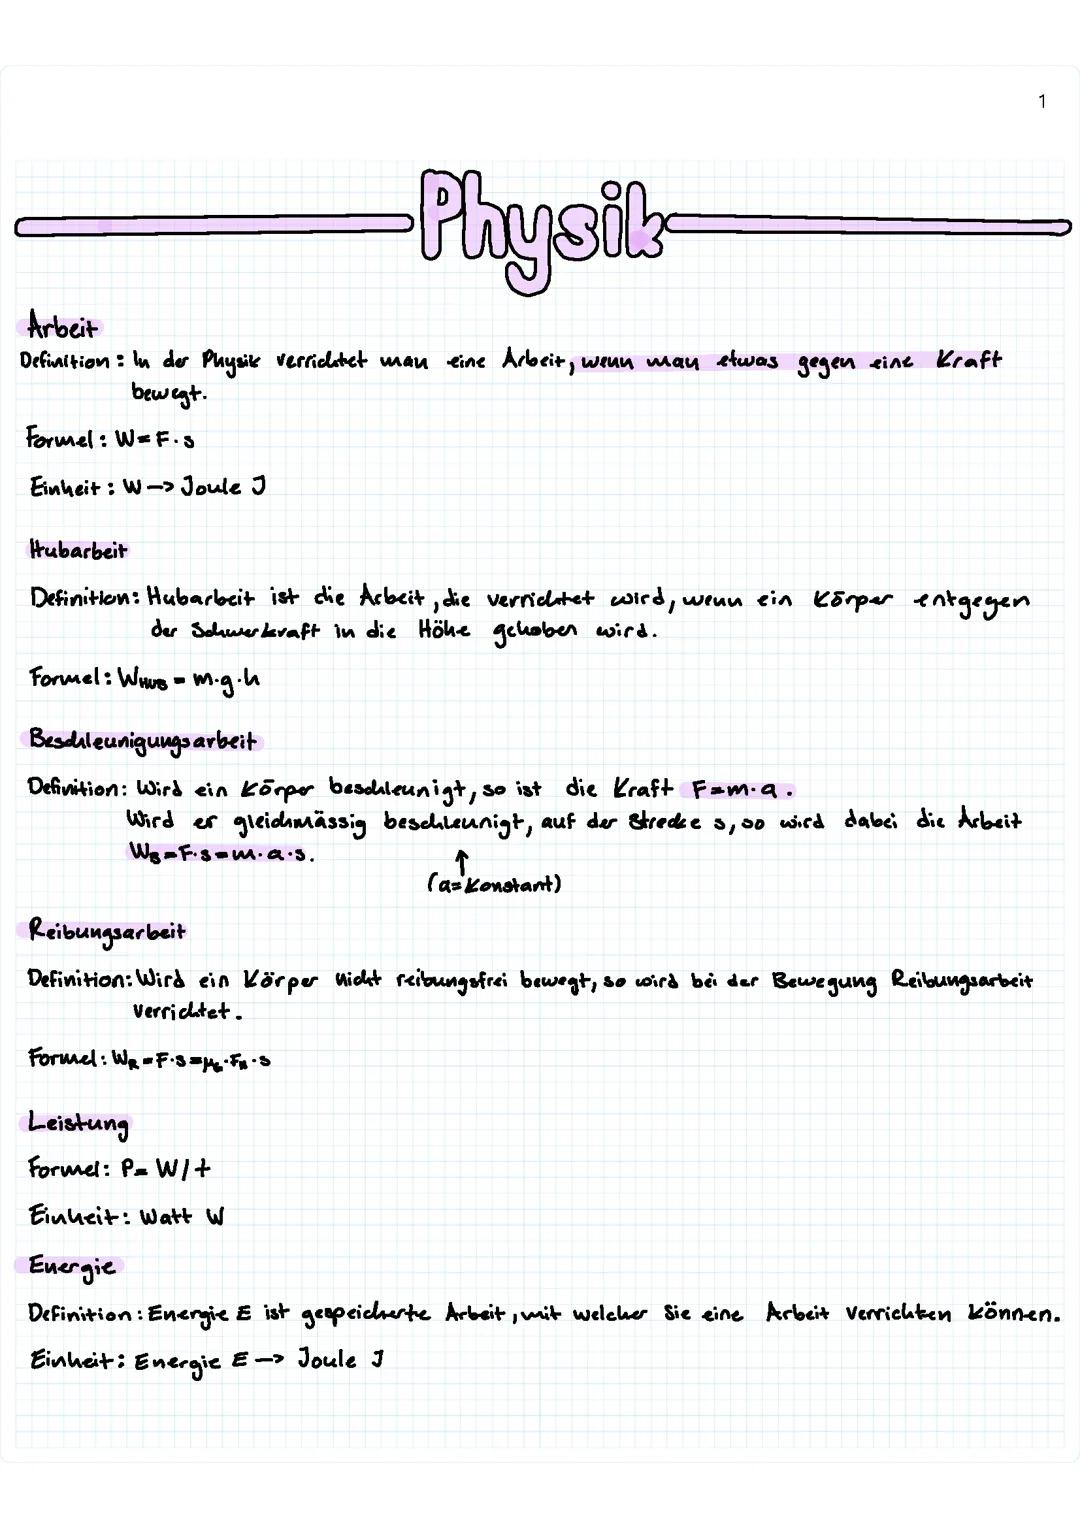 1
Physik
Arbeit
Definition: In der Physik verrichtet man eine Arbeit, wenn man etwas gegen eine Kraft
bewegt.
Formel: W=F·s
Einheit: W -> Joule J
Hubarbeit
Definition: Hubarbeit ist die Arbeit, die verrichtet wird, wenn ein Körper entgegen
der Schwerkraft in die Höhe gehoben wird.
Formel: W_HUB = m·g·h
Beschleunigungsarbeit
Definition: Wird ein Körper beschleunigt, so ist die Kraft F=m·a.
Wird er gleichmässig beschleunigt, auf der Strecke s, so wird dabei die Arbeit
W_B=F·s=m·a·s.
↑
(a=Konstant)
Reibungsarbeit
Definition: Wird ein Körper nicht reibungsfrei bewegt, so wird bei der Bewegung Reibungsarbeit
verrichtet.
Formel: W_R=F·s=μ_G·F_N·s
Leistung
Formel: P= W/t
Einheit: Watt W
Energie
Definition: Energie E ist gespeicherte Arbeit, mit welcher Sie eine Arbeit verrichten können.
Einheit: Energie E -> Joule J